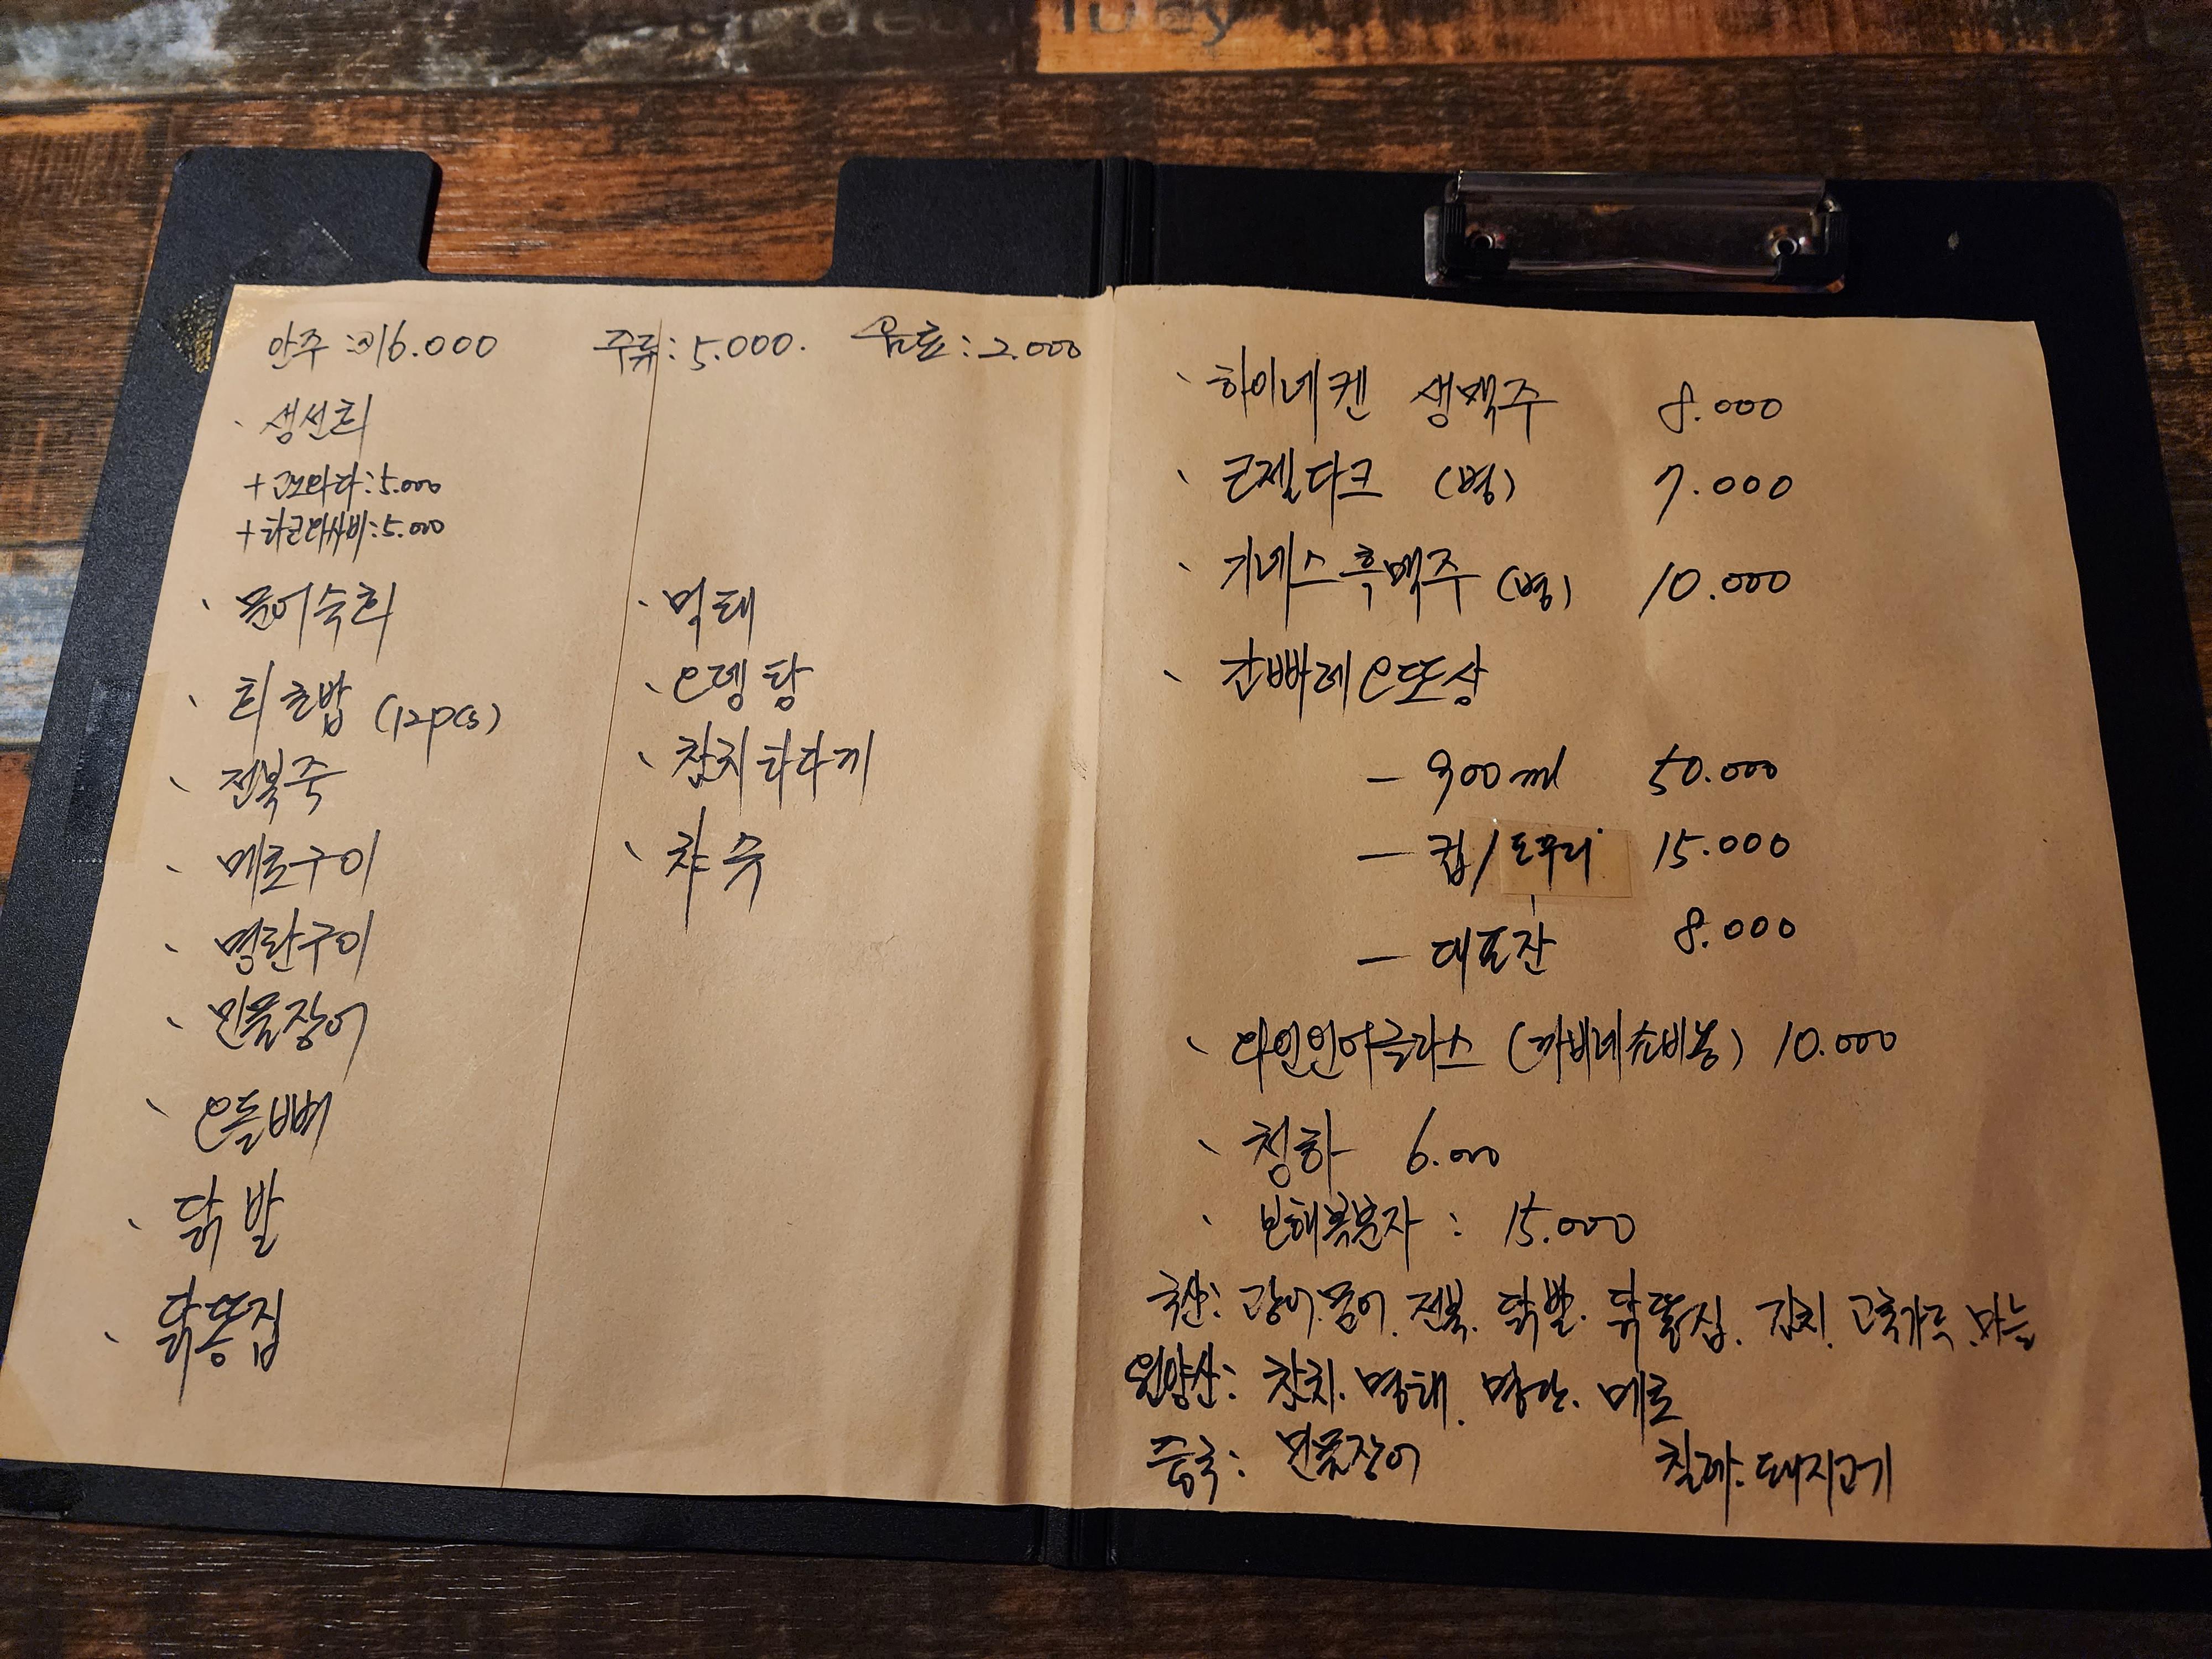 안주 : 16.000 주류 : 5.000. 음료 : 2.000
· 생선회
+ 고노와다 : 5.000
+ 타코와사비 : 5.000
· 문어숙회
· 회초밥 (12pcs)
· 전복죽
· 메로구이
· 명란구이
· 민물장어
· 오돌뼈
· 닭발
· 닭똥집
· 먹태
· 오뎅탕
· 참치타다끼
· 차슈
· 하이네켄 생맥주 8.000
· 코젤다크 (병) 7.000
· 기네스흑맥주 (병) 10.000
· 간빠레오또상
- 900ml 50.000
- 컵/도꾸리 15.000
- 대포잔 8.000
· 와인인어글라스 (까비네쇼비뇽) 10.000
· 청하 6.000
· 보해복분자 : 15.000
국산 : 광어. 문어. 전복. 닭발. 닭똥집. 김치. 고춧가루. 마늘
원양산 : 참치. 명태. 명란. 메로
중국 : 민물장어 칠레 : 돼지고기